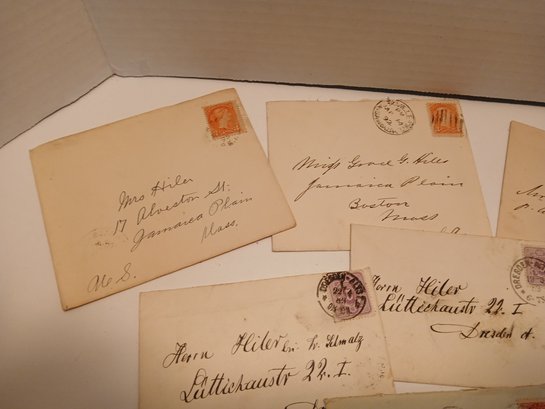 Mrs Hiler
17 Alveston St.
Jamaica Plain
Mass.
U. S.
Miss Grace G. Hiler
Jamaica Plain
Boston
Mass
Herrn Hiler
Lüttichaustr 22. I
Dresden A.
DRESDEN
Herrn Hiler bei W. Schmalz
Lüttichaustr 22. I.
DRESDEN